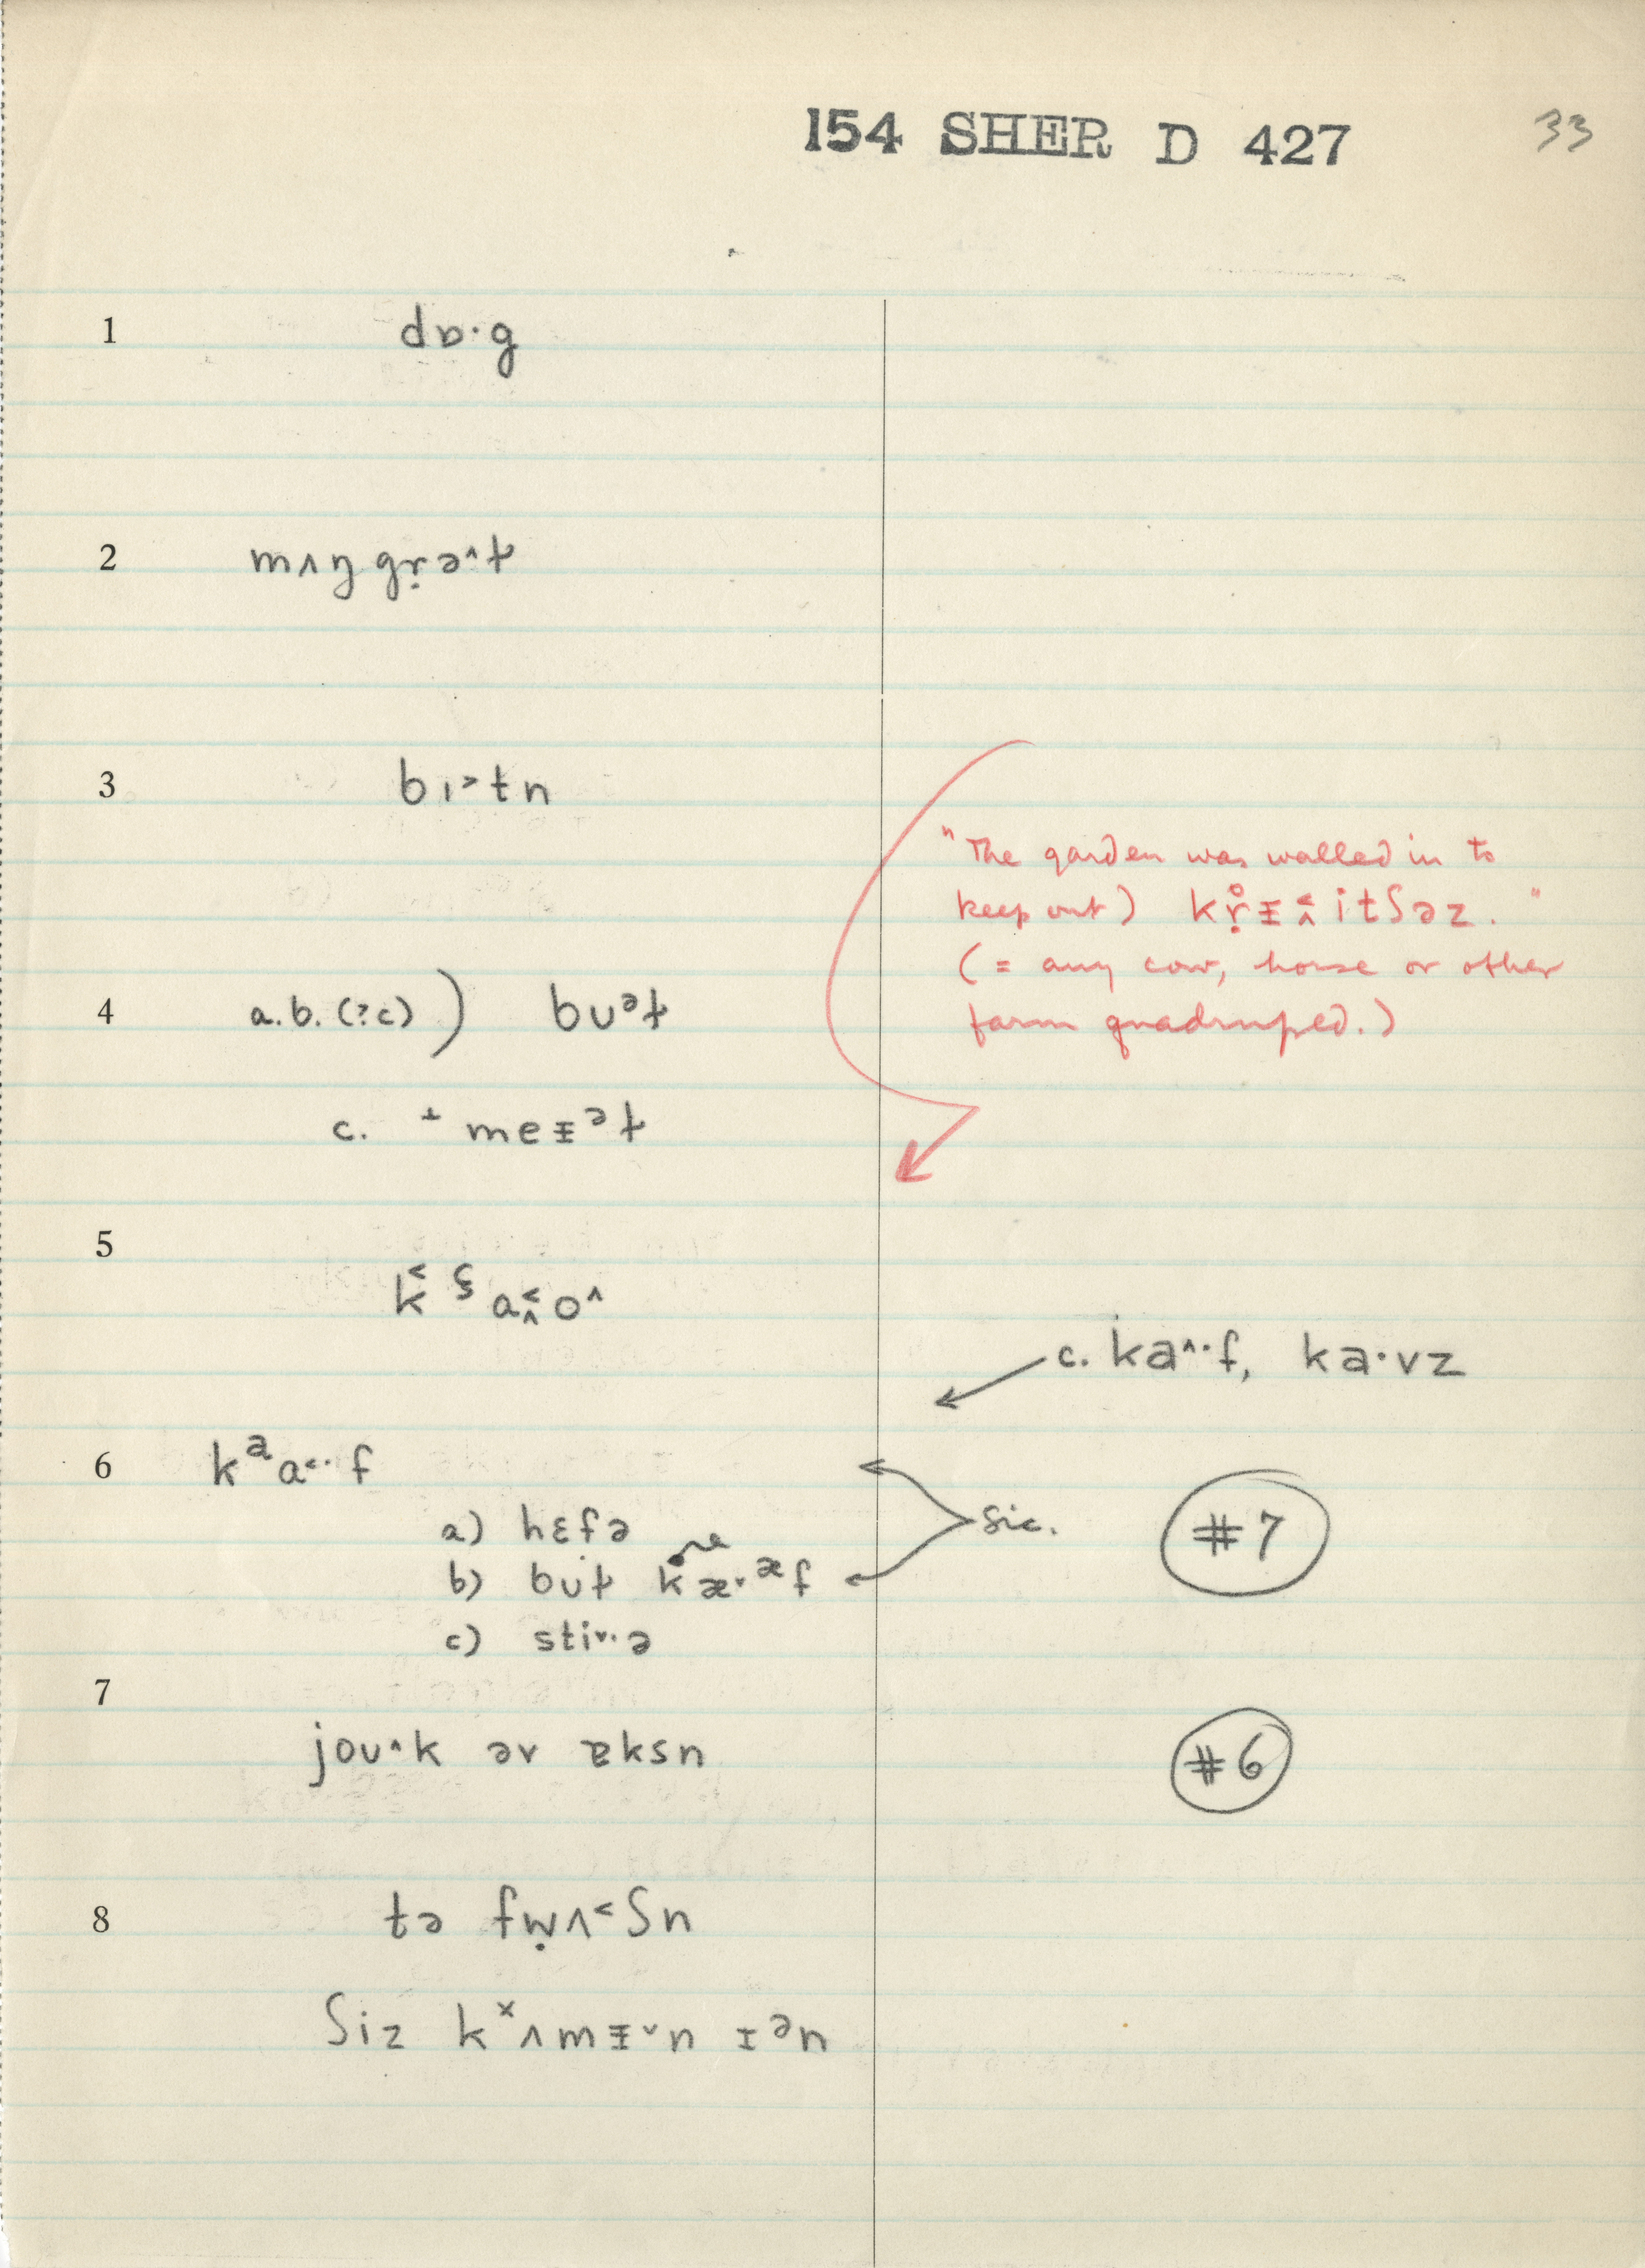 154 SHER D 427 33
1 dɒ·g
2 mʌŋgṛə^t̬
3 bɪ˃tn
"The garden was walled in to
keep out) kṛ̊ᵻ˂̭itʃəz."
(= any cow, horse or other
farm quadruped.)
4 a.b. (?c) ) bʊᵊt̬
c. + meᵻᵊt̬
5
k˂ ʕ a˂̭o^
c. ka^·f, ka·vz
6 kᵃa˂·f
a) hɛfə
sic.
#7
b) bʊt̬ kæ˅·ᵆf
one
c) sti˅·ə
7
joʊ^k əv ɐksn
#6
8 tə fẉʌ˂ʃn
ʃiz kˣʌmᵻ˅n ɪᵊn